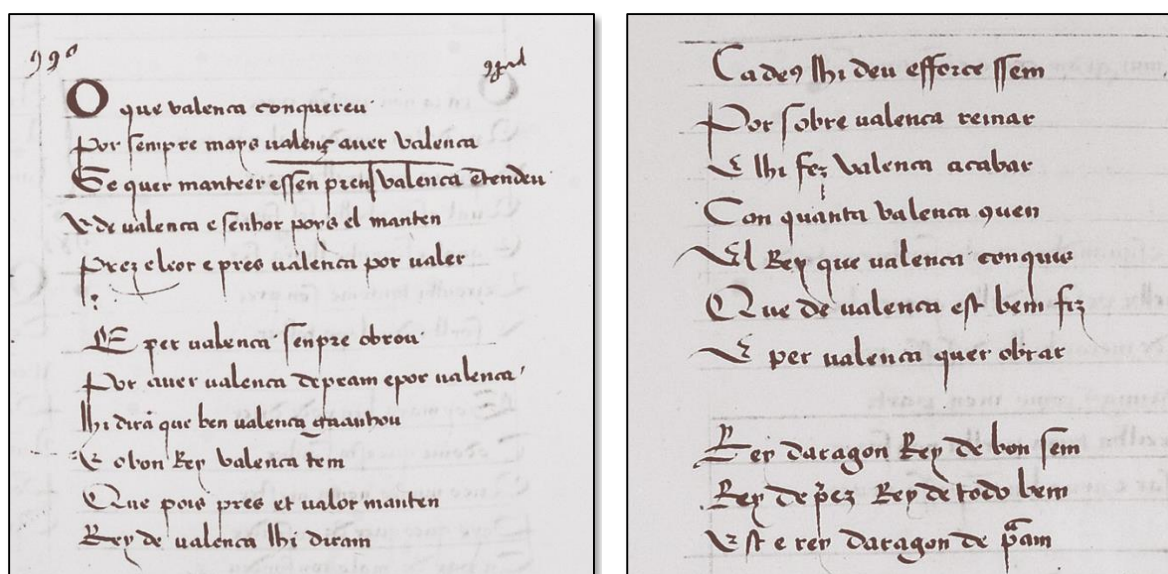 990
O que valenca conquereu
Por sempre mays valenç aver valenca
Se quer manteer essen prens valenca etendeu
E de valenca e senhor pois el manten
Prez e leor e pres valenca por valer
E per valenca senpre obrou
Por aver valenca depram epor valenca
lhi dirã que ben valenca guanhou
E obon Rey valenca tem
Que pois pres et valor manten
Rey de valenca lhi diram
Ca deꝯ lhi deu efforce ssem
Por sobre valenca reinar
E lhi fez valenca acabar
Con quanta valenca ꝯuen
El Rey que valenca conquis
Que de valenca est bem fiz
E per valenca quer obrar
Rey daragon Rey de bon sem
Rey de p̃ez Rey de todo bem
Est e rey daragon de p̃am